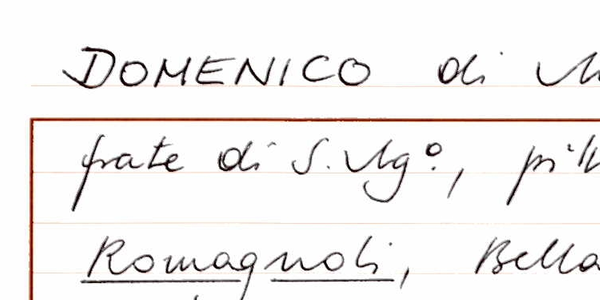 DOMENICO di
frate di S. Ugº,
Romagnoli, Bella